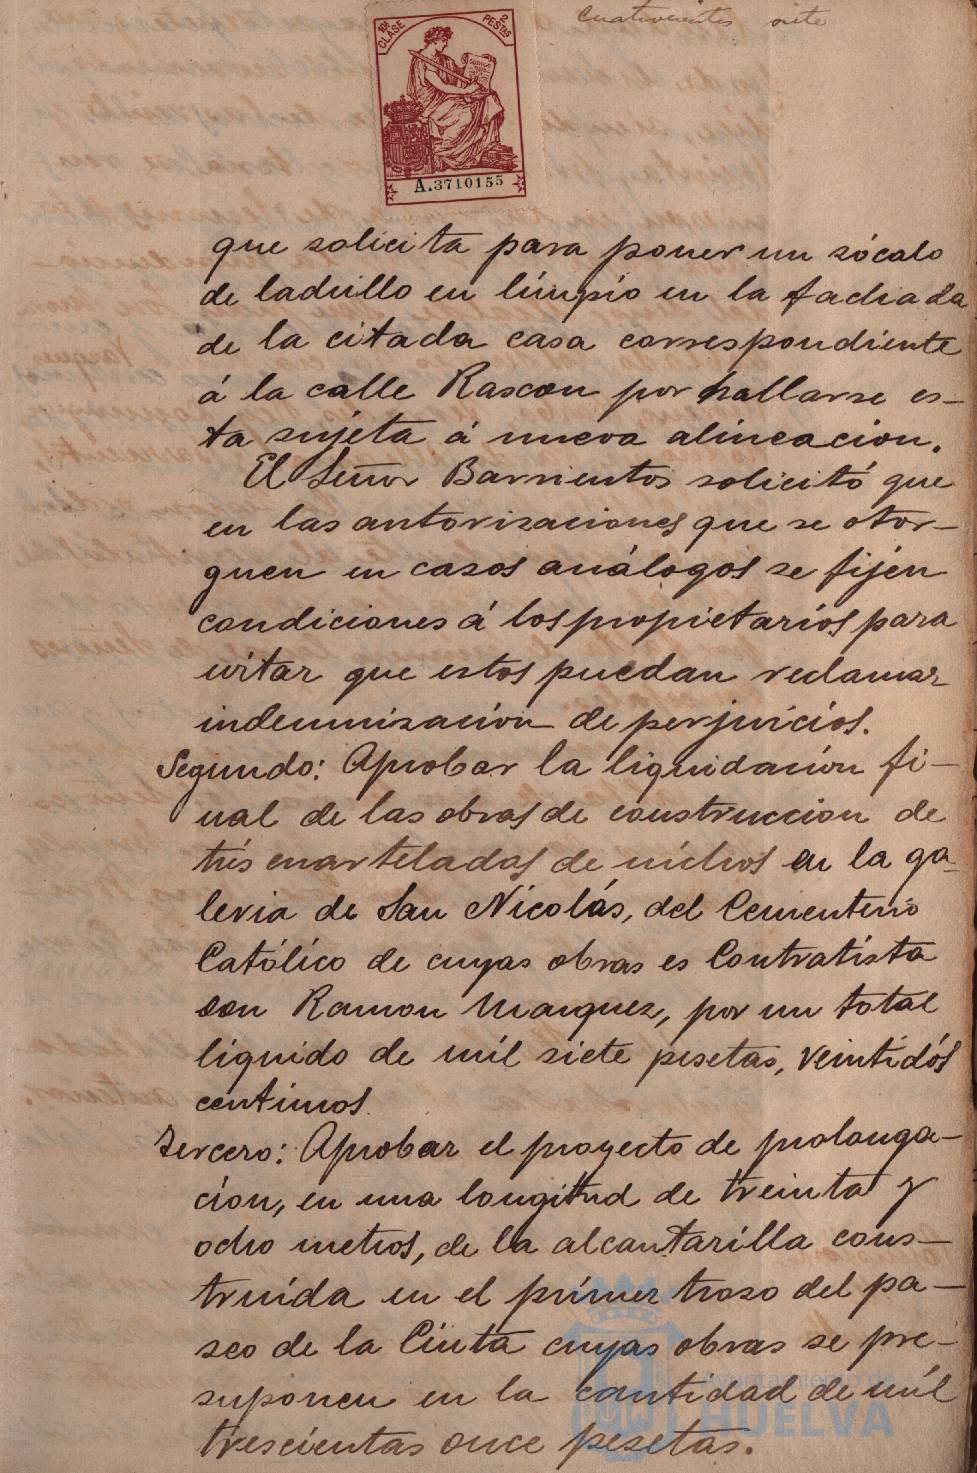 cuatrocientos siete
10ª CLASE
2 PESETAS
A.3710155
que solicita para poner un zócalo
de ladrillo en límpio en la fachada
de la citada casa correspondiente
á la calle Rascon por hallarse es-
ta sujeta á nueva alineacion.
El Señor Barrientos solicitó que
en las autorizaciones que se otor-
guen en casos análogos se fijen
condiciones á los propietarios para
evitar que estos puedan reclamar
indemnizacion de perjuicios.
Segundo: Aprobar la liquidación fi-
nal de las obras de construccion de
trés cuarteladas de nichos en la ga-
leria de San Nicolás, del Cementerio
Católico de cuyas obras es Contratista
don Ramon Marquez, por un total
líquido de mil siete pesetas, veintidós
centimos.
Tercero: Aprobar el proyecto de prolonga-
ción, en una longitud de treinta y
ocho metros, de la alcantarilla cons-
truida en el primer trozo del pa-
seo de la Cinta cuyas obras se pre-
suponen en la cantidad de mil
trescientas once pesetas.
Ayuntamiento de
HUELVA